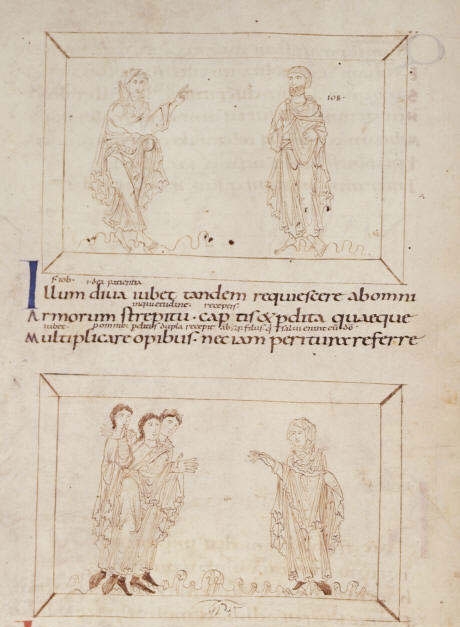 IOB·
s·iob· i·dea patientia
Illum diua iubet tandem requiescere abomni
inquietudine receptis
Armorum strepitu · cap tis & pdita quaeque
iubet dupla recepit
Multiplicare opibus · nec iam peritura referre